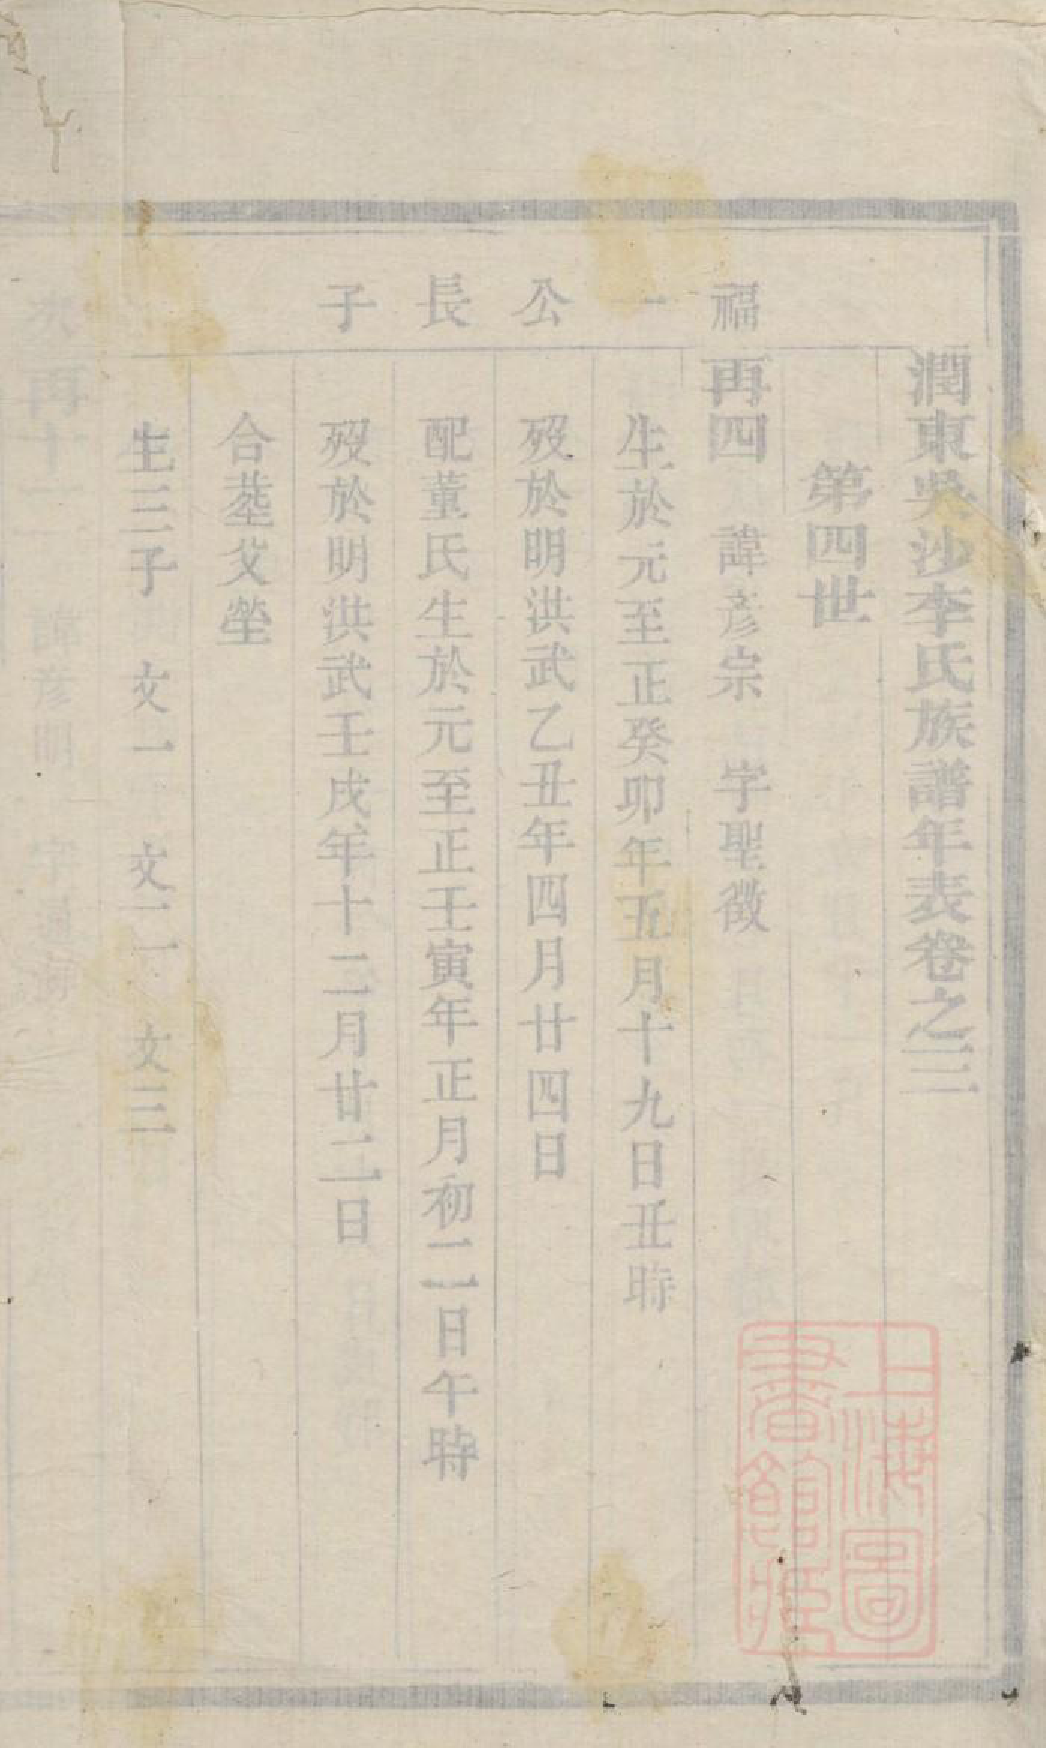 潤東吳沙李氏族譜年表卷之三
第四世
福一公長子
再四　諱彦宗　字聖徵
生於元至正癸卯年五月十九日丑時
歿於明洪武乙丑年四月廿四日
配董氏生於元至正壬寅年正月初二日午時
歿於明洪武壬戌年十二月廿二日
合塟父塋
生三子　文一　文二　文三
次
再十一　諱彦明　字
上海圖書館藏